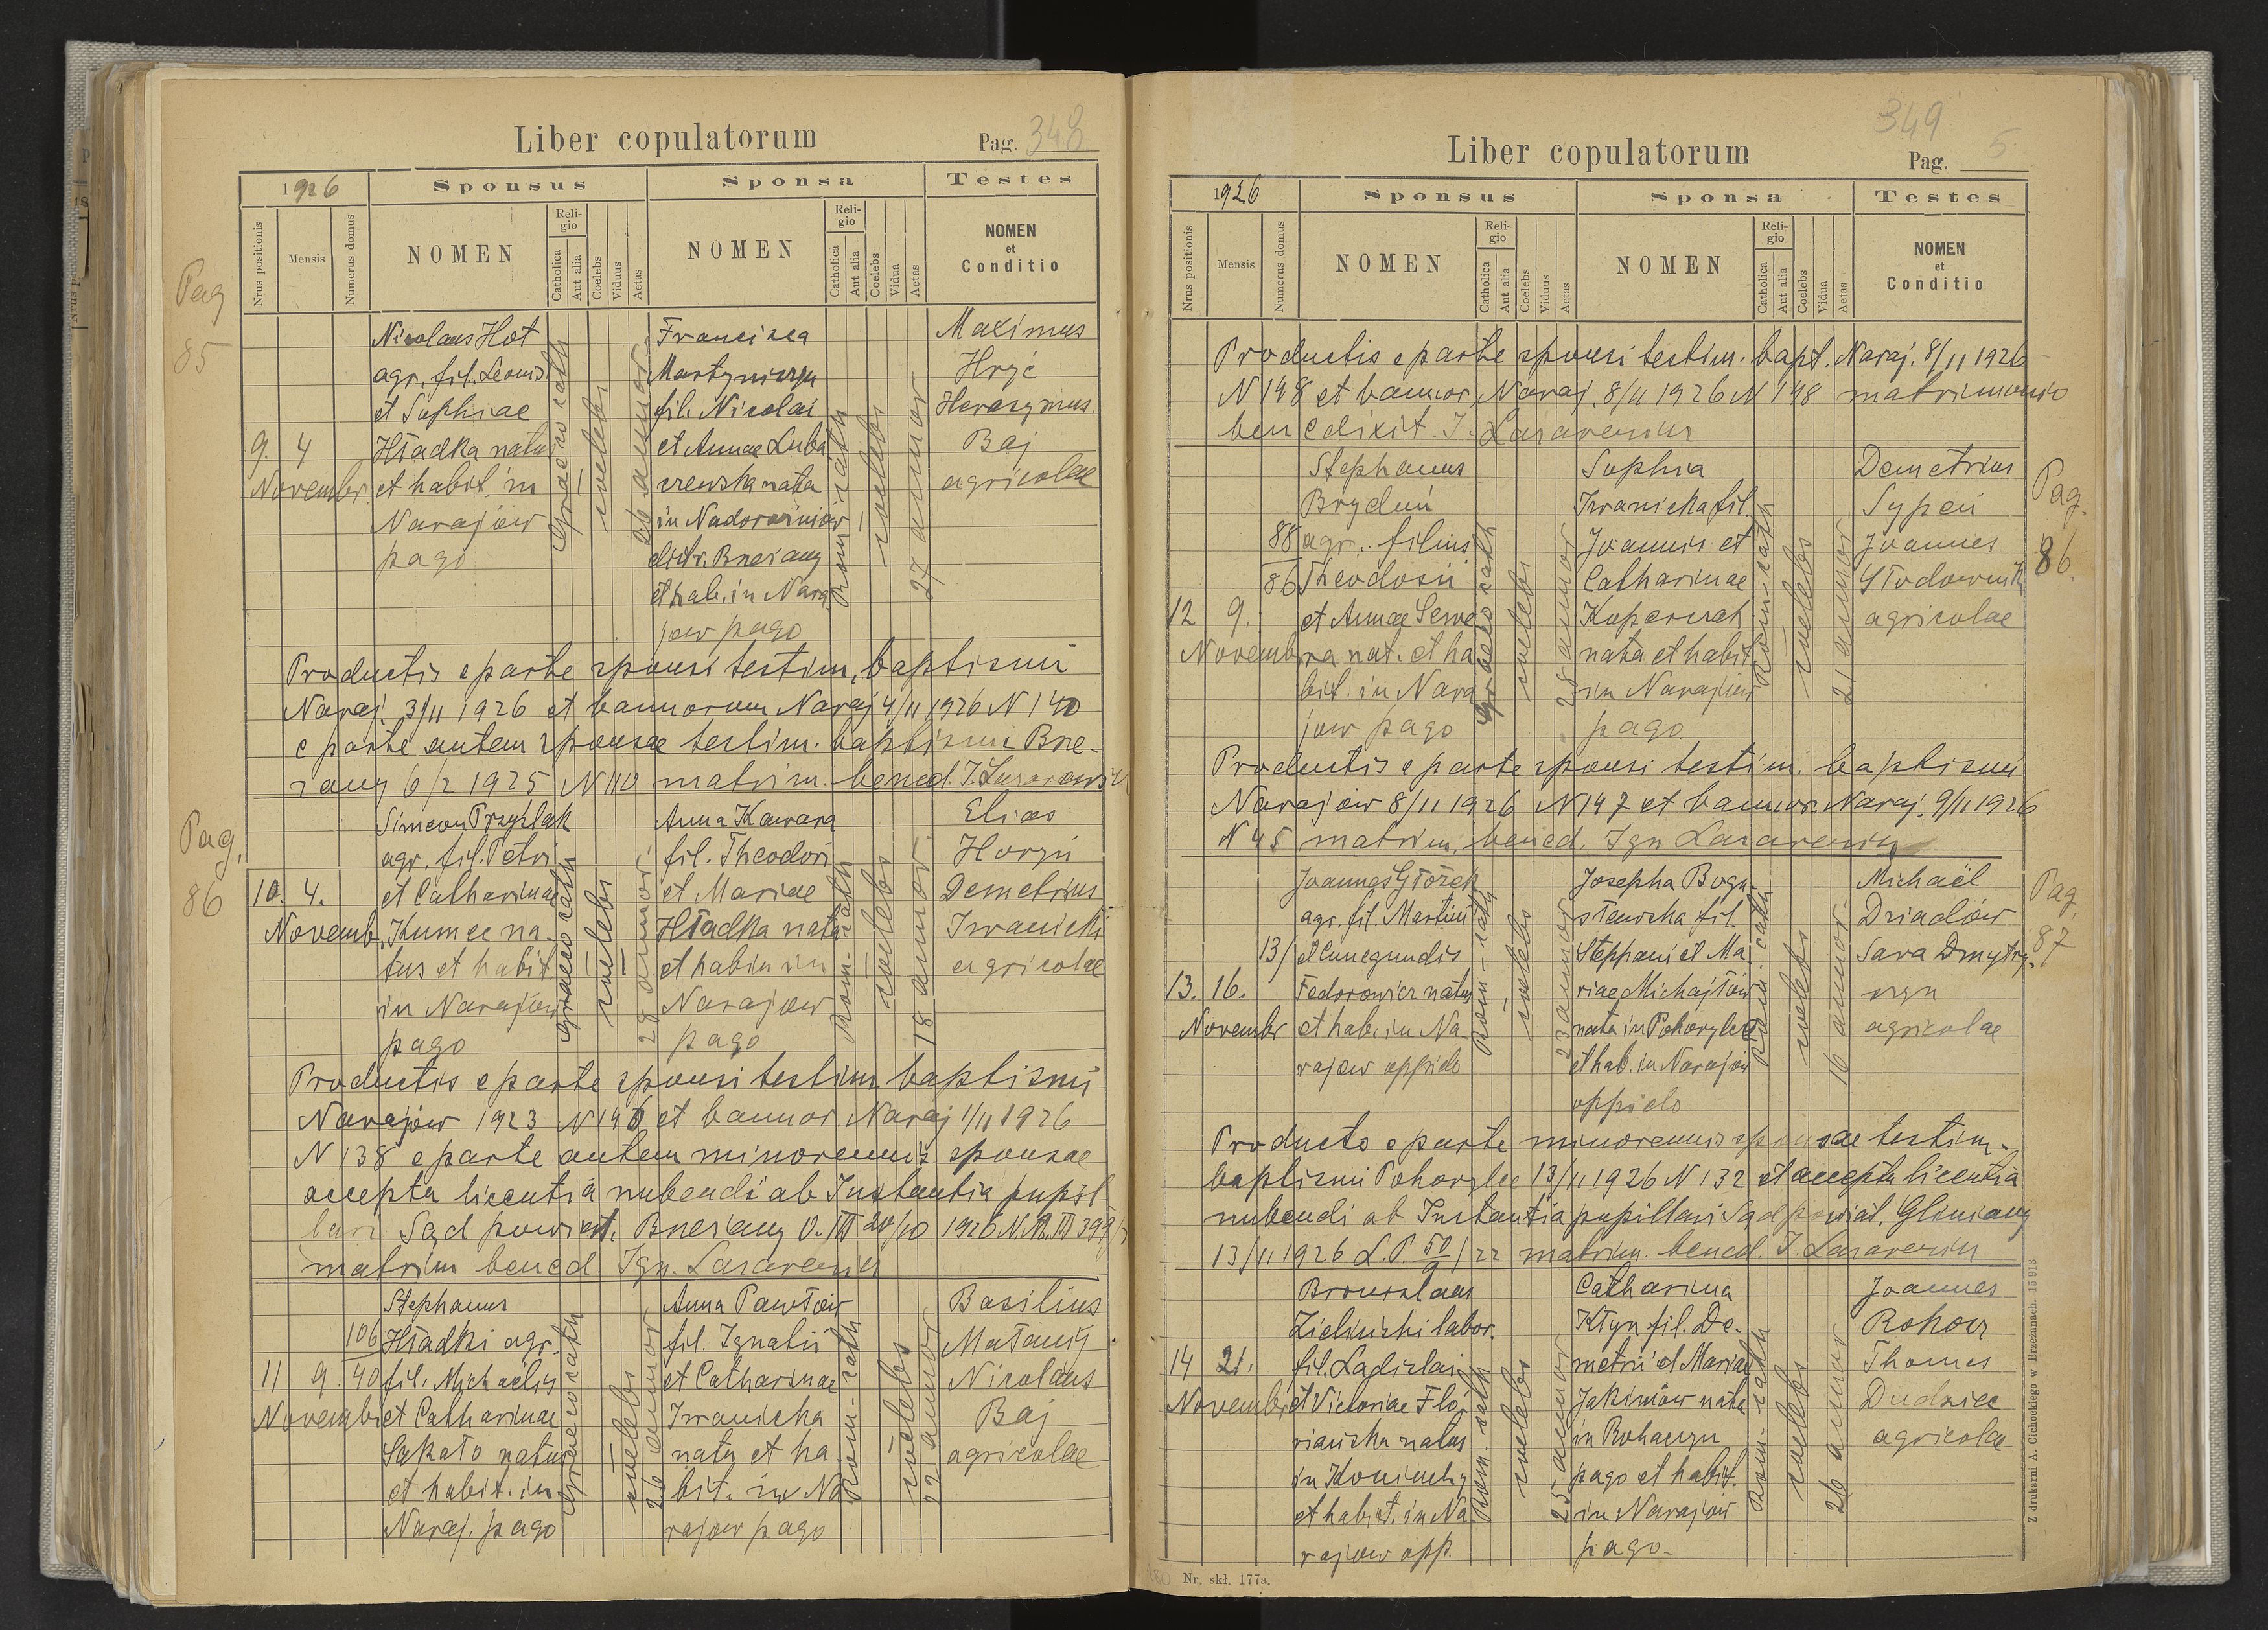 Liber copulatorum
Pag. 348
1926
Sponsus
Sponsa
Testes
Nrus positionis
Mensis
Numerus domus
NOMEN
Religio
Catholica
Aut alia
Coelebs
Viduus
Aetas
NOMEN
Religio
Catholica
Aut alia
Coelebs
Vidua
Aetas
NOMEN
et
Conditio
Pag
85
9. 4
Novembr.
Nicolaus Hot
agr. fil. Leonis
et Sophiae
Hładka natus
et habit. in
Narajow
pago
Graeco cath
coelebs
26 annor
Francisca
fil. Nicolai
et Annae Luba
czewska nata
in Nadorożniów
distr. Brzeżany
et hab. in Nara
jow pago
Rom. cath
coelebs
27 annor
Maximus
Hryć
Herasymus
Baj
agricolae
Productis e parte sponsi testim. baptismi
Naraj. 3/11 1926 et bannorum Naraj 4/11 1926 N 140
e parte autem sponsae testim. baptismi Brze-
żany 6/2 1925 N 110 matrim. bened. I. Lazarewicz
Pag.
86
10. 4.
Novemb.
Simeon Przyzlak
agr. fil. Petri
et Catharinae
Kumec na-
tus et habit.
in Narajow
pago
Graeco cath
coelebs
28 annor
Anna Kawara
fil. Theodori
et Mariae
Hładka nata
et habit. in
Narajow
pago
Rom-cath
coelebs
18 annor
Elias
Horyń
Demetrius
Iwanicki
agricolae
Productis e parte sponsi testim baptismi
Narajow 1923 N 146 et bannor Naraj 1/11 1926
N 138 e parte autem minorennis sponsae
accepta licentia nubendi ab Instantia pupil
lari Sąd powiat. Brzeżany O. III 20/10 1926
matrim bened. Ign. Lazarewicz
11 9.
Novemb
106
40
Stephanus
Hładki agr.
fil. Michaelis
et Catharinae
Sakato natus
et habit. in
Naraj. pago
Graeco cath
coelebs
26 annor
Anna Pawłow
fil. Ignatii
et Catharinae
Iwanicka
nata et ha
bit. in Na
rajow pago
Rom-cath
coelebs
22 annor
Basilius
Matanij
Nicolaus
Baj
agricolae
349
Liber copulatorum
Pag. 5
1926
Sponsus
Sponsa
Testes
Nrus positionis
Mensis
Numerus domus
NOMEN
Religio
Catholica
Aut alia
Coelebs
Viduus
Aetas
NOMEN
Religio
Catholica
Aut alia
Coelebs
Vidua
Aetas
NOMEN
et
Conditio
Productis e parte sponsi testim. bapt. Naraj. 8/11 1926
N 148 et bannor, Naraj. 8/11 1926 N 148 matrimonio
benedixit. I. Lazarewicz
12 9.
Novemb
88
86
Stephanus
Brydun
agr. filius
Theodosii
et Annae Serwe
ra nat. et ha
bit. in Nara
jow pago
Graeco cath
coelebs
28 annor
Sophia
Iwanicka fil.
Joannis et
Catharinae
nata et habit
in Narajow
pago
Rom-cath
coelebs
21 annor
Demetrius
Sypeń
Joannes
agricolae
Pag.
86.
Productis e parte sponsi testim. baptismi
Narajow 8/11 1926 N 147 et bannor. Naraj. 9/11 1926
N 45 matrim. bened. Ign Lazarewicz
13. 16.
Novembr
13/
Joannes Głożek
agr. fil. Martini
et Cunegundis
Fedorowicz natus
et hab. in Na-
rajow oppido
Rom-cath
coelebs
23 annor
Josepha Bogu-
sławska fil.
Stephani et Ma
riae Michajłow
nata in Pohorylce
et hab. in Narajow
oppido
Rom. cath
coelebs
16 annor
Michaël
Dziadów
Sava Dmytry-
szyn
agricolae
Pag.
87
Producto e parte minorennis sponsae testim-
baptismi Pohorylce 13/11 1926 N 132 et accepta licentia
nubendi ab Instantia pupillari Sąd powiat. Gliniany
13/11 1926 L.P. 50/9 /22 matrim. bened. I. Lazarewicz
14 21.
Novembr
Bronislaus
Zieliński labor.
fil. Ladislai
et Victoriae Flo-
riańska natus
in Koniuchy
et habit. in Na
rajow opp.
Rom. cath
coelebs
25 annor
Catharina
Kłyn fil. De-
metrii et Mariae
Jakimów nata
in Rohaczyn
pago et habit.
in Narajow
pago.
Rom-cath
coelebs
26 annor
Joannes
Rohacz
Thomas
Dudziec
agricolae
Nr. skł. 177a.
Z drukarni A. Cichockiego w Brzeżanach. 15 913